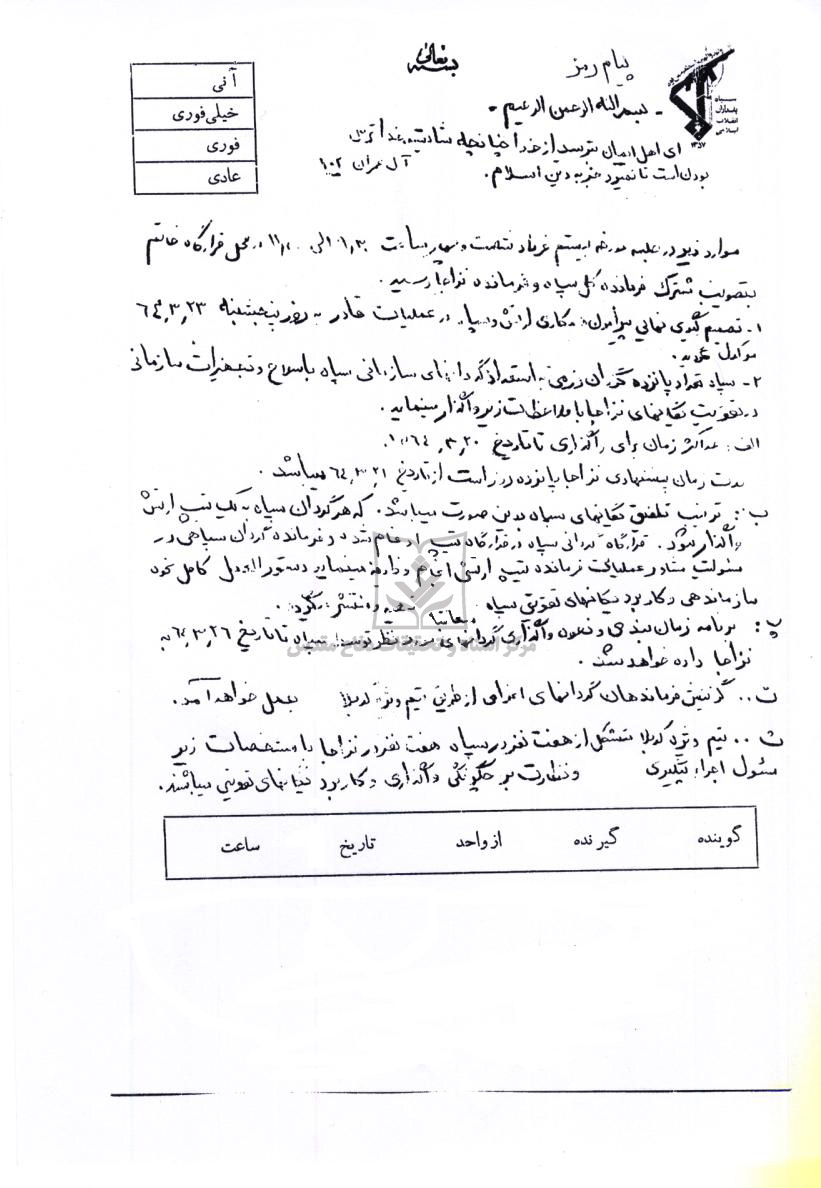 بسمه تعالی
پیام رمز
آنی
خیلی فوری
فوری
عادی
سپاه
پاسداران
انقلاب
اسلامی
۱۳۵۷
- بسم الله الرحمن الرحیم -
ای اهل ایمان بترسید از خدا چنانچه شایسته خدا ترس
بودن است تا نمیرید جز به دین اسلام. آل عمران ۱۰۲
موارد زیر در جلسه مورخه بیستم خرداد شصت و چهار ساعت الی ۱۱٫۰۰ در محل قرارگاه خاتم
بتصویب مشترک فرمانده کل سپاه و فرمانده نزاجا رسید.
۱- تصمیم گیری نهائی پیرامون همکاری ارتش و سپاه در عملیات قادر به روز پنجشنبه ۶۴٫۳٫۲۳
موکول گردید.
۲- سپاه تعداد پانزده گردان رزمی به استعداد گردانهای سازمانی سپاه باسلاح و تجهیزات سازمانی
در تقویت یگانهای نزاجا با ملاحظات زیر واگذار مینماید.
الف: حداکثر زمان برای واگذاری تا تاریخ ۶۴٫۳٫۲۰
مدت زمان پیشنهادی نزاجا پانزده روز است از تاریخ ۶۴٫۳٫۲۱ میباشد.
ب: ترتیب تلفیق یگانهای سپاه بدین صورت میباشد. که هر گردان سپاه به یک تیپ ارتش
واگذار شود. قرارگاه گردانی سپاه در قرارگاه تیپ ادغام شده و فرمانده گردان سپاهی در
مسئولیت مشاور عملیاتی فرمانده تیپ ارتش انجام وظیفه مینماید دستورالعمل کامل نحوه
سازماندهی و کاربرد یگانهای تقویتی سپاه متعاقبا تهیه و منتشر میگردد.
پ: برنامه زمان بندی و نحوه واگذاری گردانهای مورد نظر توسط سپاه تا تاریخ ۶۴٫۳٫۲۶ به
نزاجا داده خواهد شد.
ت.. گزینش فرماندهان گردانهای اعزامی از طریق تیم ویژه کربلا بعمل خواهد آمد.
ث.. تیم ویژه کربلا متشکل از هفت نفر در سپاه هفت نفر در نزاجا با مشخصات زیر
مسئول اجراء پیگیری و نظارت بر چگونگی واگذاری و کاربرد یگانهای تقویتی میباشند.
گوینده گیرنده از واحد تاریخ ساعت
مرکز اسناد و تحقیقات دفاع مقدس